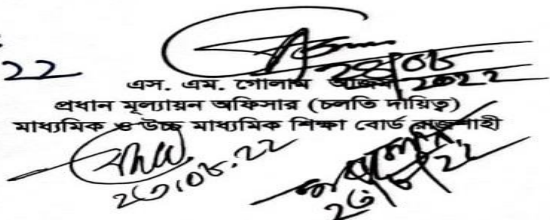 22
২৪/০৮/2022
এস. এম. গোলাম আজম
প্রধান মূল্যায়ন অফিসার (চলতি দায়িত্ব)
মাধ্যমিক ও উচ্চ মাধ্যমিক শিক্ষা বোর্ড রাজশাহী
২৩.০৮.২২
২৩/৮/২২